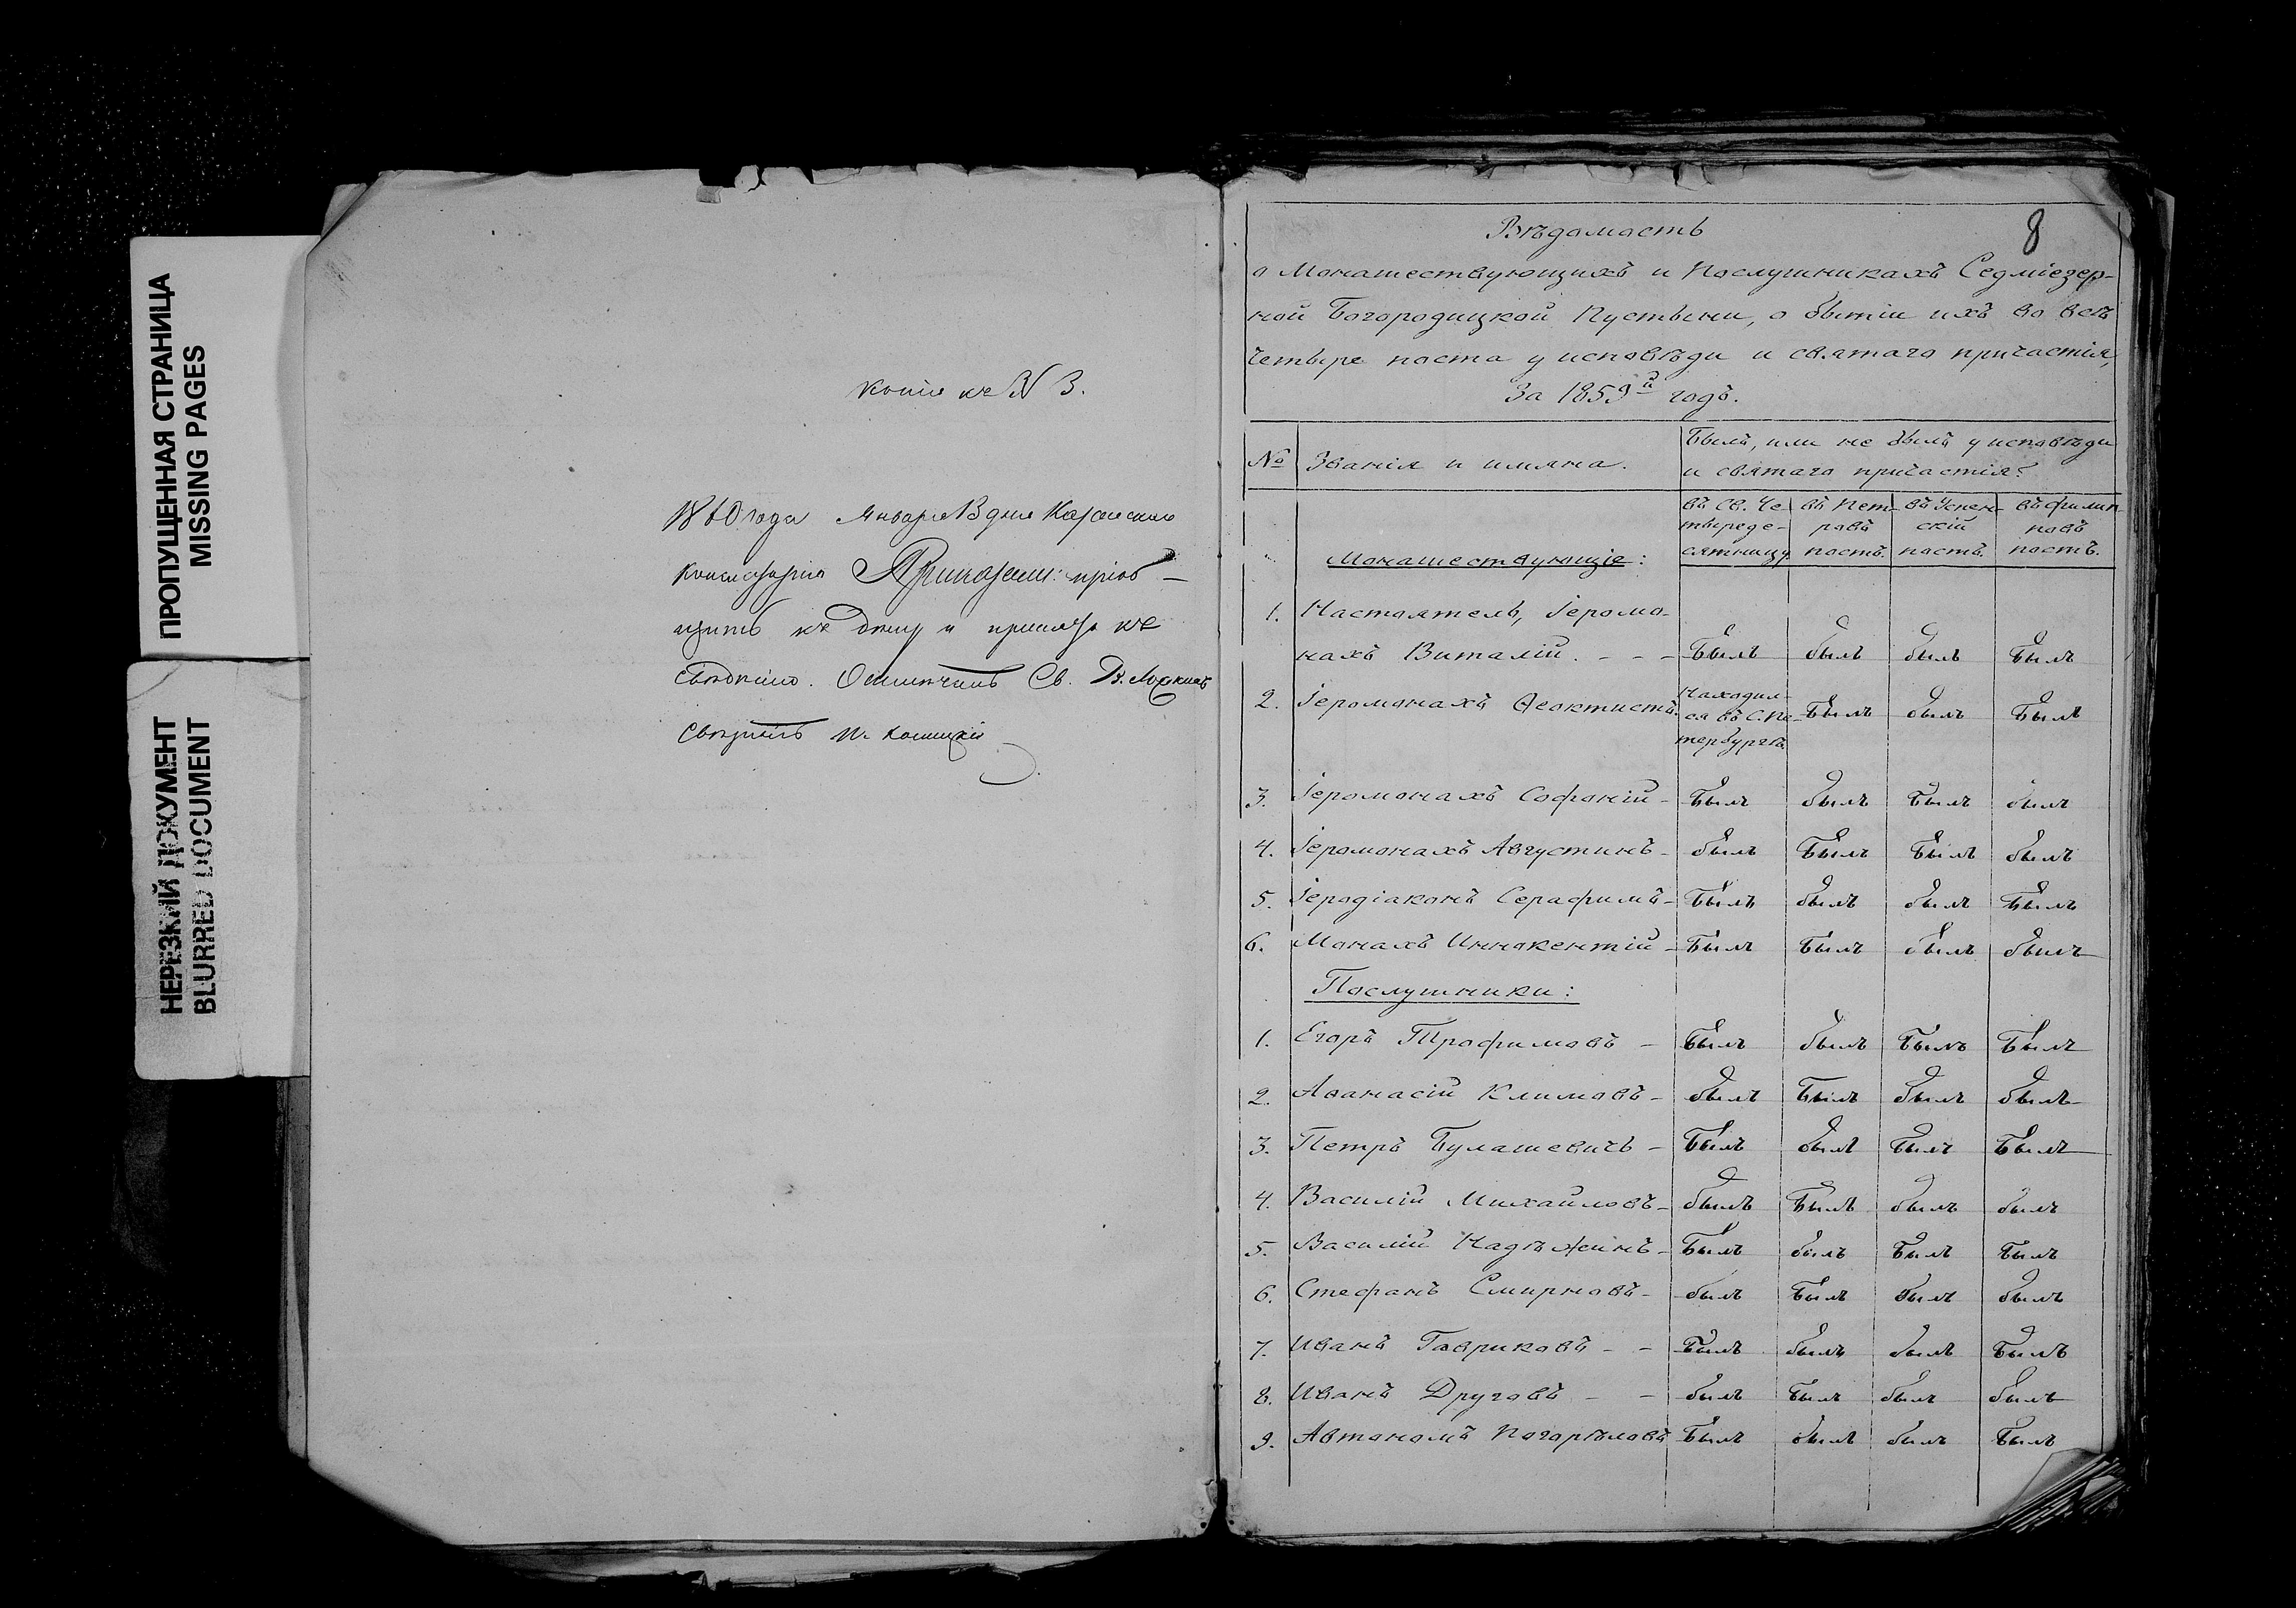 ПРОПУЩЕННАЯ СТРАНИЦА
MISSING PAGES
НЕРЕЗКИЙ ДОКУМЕНТ
BLURRED DOCUMENT
копія къ N 3.
1860 года Января 13 дня Казанская
Консисторія Приказали: пріоб-
щить къ дѣлу и
Св.
8
Вѣдомость
о Монашествующихъ и Послушникахъ Седміезер-
ной Богородицкой Пустыни, о бытіи ихъ во всѣ
четыре поста у исповѣди и святаго причастія,
За 1859й годъ.
№ Званія и имяна. Былъ, или не былъ у исповѣди
и святаго причастія?
въ Св. Че- въ Пет- въ Успен- въ Филип-
тыреде- ровъ скій повъ
сятницу постъ. постъ. постъ.
Монашествующіе:
1. Настоятель, Іеромо-
нахъ Виталій. - - - Былъ былъ былъ Былъ
2. Іеромонахъ Ѳеоктистъ. Находил-
ся въ С. Пе- Былъ былъ Былъ
тербургѣ
3. Іеромонахъ Софоній - Былъ былъ Былъ былъ
4. Іеромонахъ Августинъ - былъ Былъ Былъ былъ
5. Іеродіаконъ Серафимъ - Былъ былъ былъ Былъ
6. Монахъ Иннокентій - Былъ Былъ былъ былъ
Послушники:
1. Егоръ Трофимовъ - Былъ былъ Былъ Былъ
2. Аѳанасій Климовъ - былъ Былъ былъ былъ
3. Петръ Булашевичъ - Былъ былъ Былъ Былъ
4. Василій Михайловъ - былъ Былъ былъ былъ
5. Василій Надѣжинъ - Былъ былъ Былъ Былъ
6. Стефанъ Смирновъ - былъ Былъ былъ былъ
7. Иванъ Гавриковъ - - Былъ былъ былъ Былъ
8. Иванъ Друговъ - - былъ Былъ былъ былъ
9. Автономъ Погорѣловъ Былъ былъ былъ Былъ